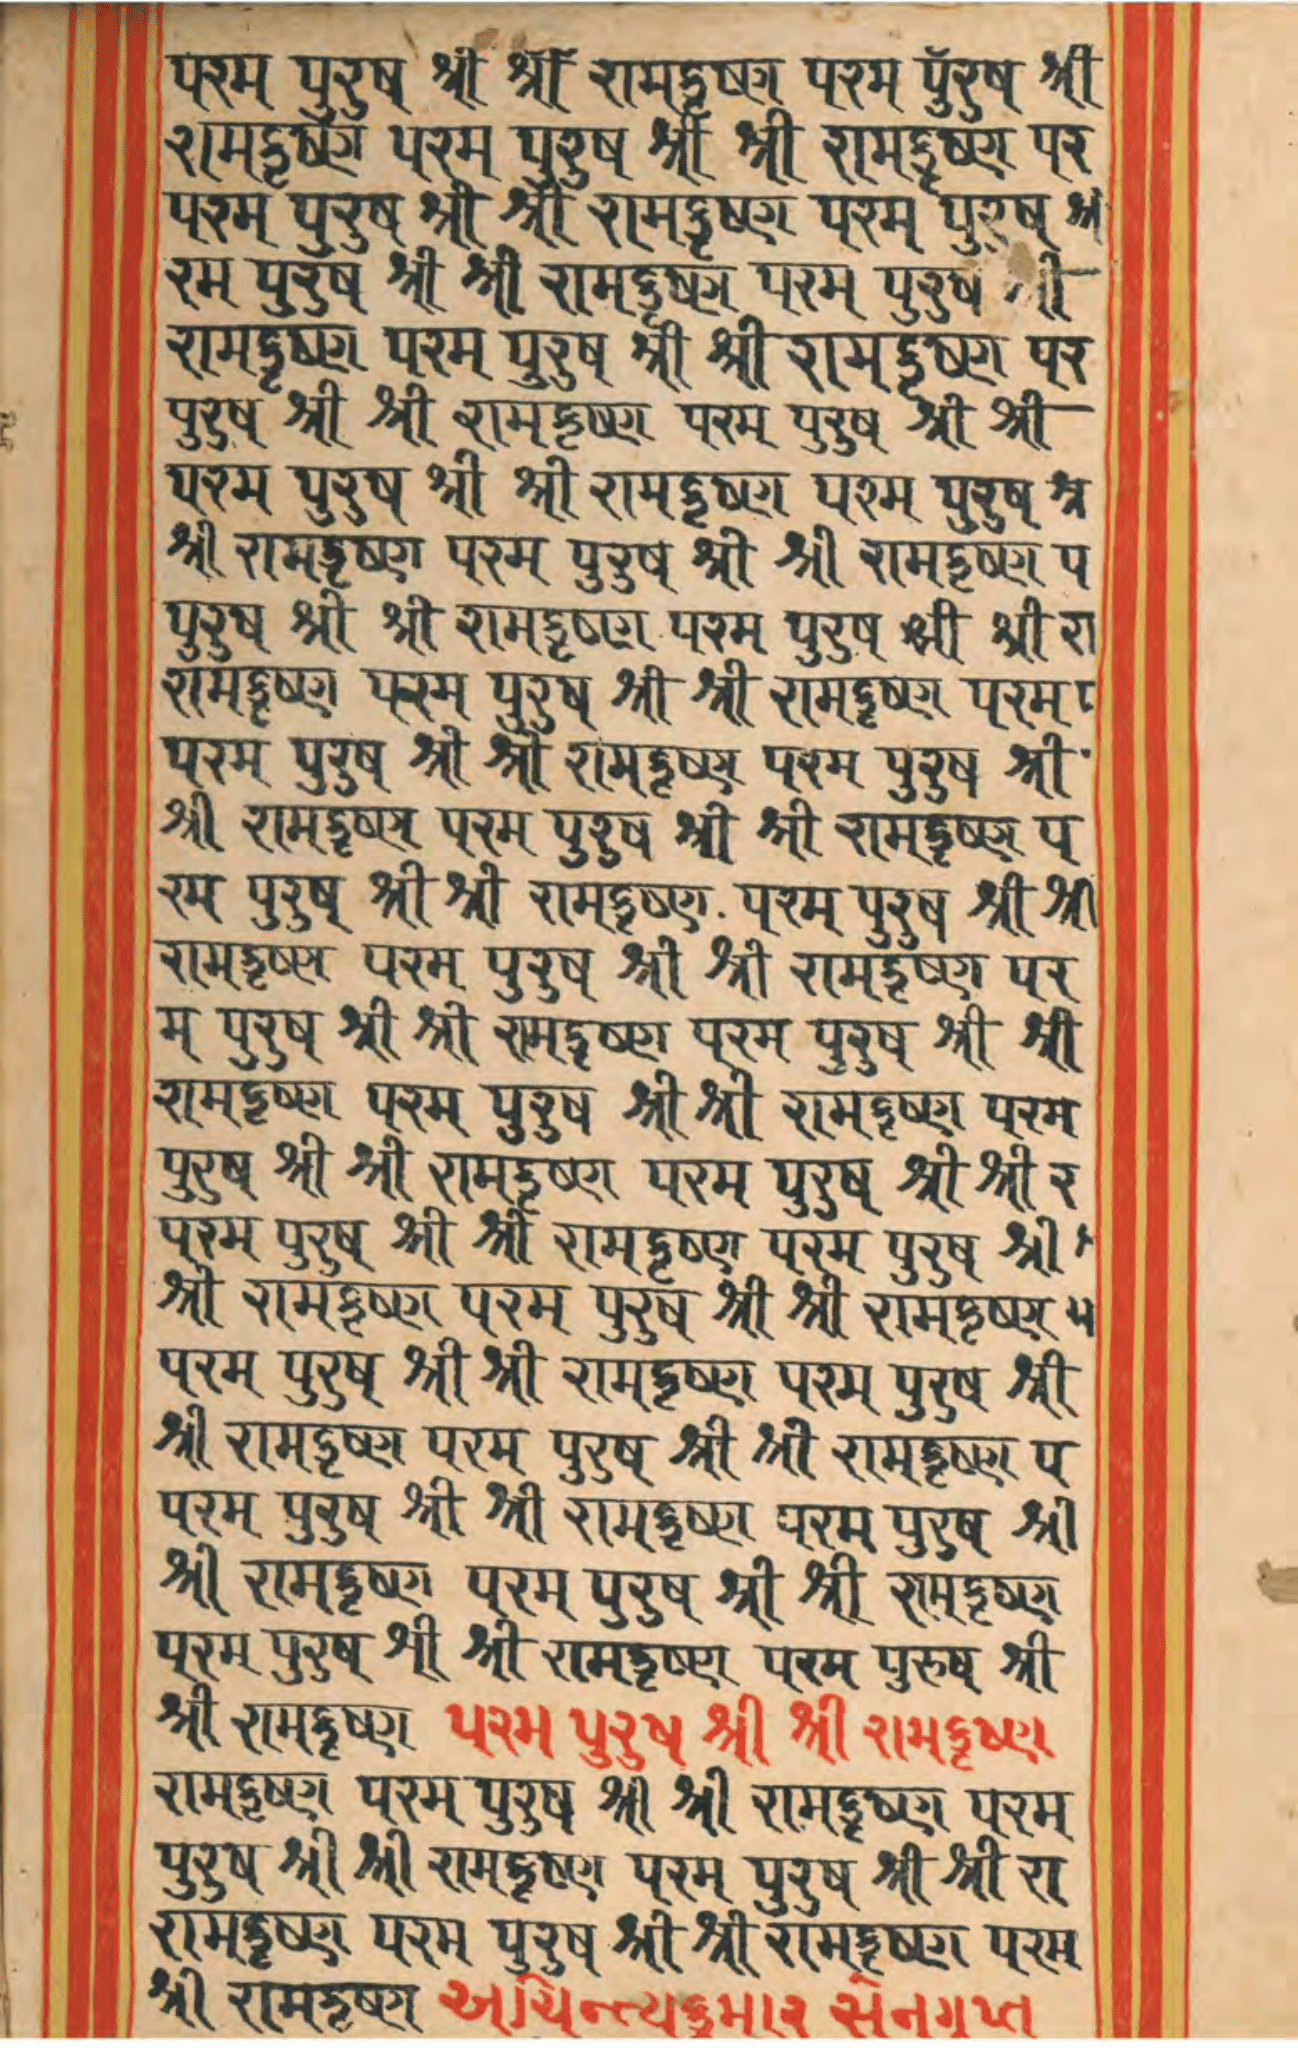 परम पुरुष श्री श्री रामकृष्ण परम पुरुष श्री
रामकृष्ण परम पुरुष श्री श्री रामकृष्ण पर
परम पुरुष श्री श्री रामकृष्ण परम पुरुष
रम पुरुष श्री श्री रामकृष्ण परम पुरुष श्री
रामकृष्ण परम पुरुष श्री श्री रामकृष्ण पर
पुरुष श्री श्री रामकृष्ण परम पुरुष श्री श्री
परम पुरुष श्री श्री रामकृष्ण परम पुरुष श्र
श्री रामकृष्ण परम पुरुष श्री श्री रामकृष्ण प
पुरुष श्री श्री रामकृष्ण परम पुरुष श्री श्री रा
रामकृष्ण परम पुरुष श्री श्री रामकृष्ण परम
परम पुरुष श्री श्री रामकृष्ण परम पुरुष श्री
श्री रामकृष्ण परम पुरुष श्री श्री रामकृष्ण प
रम पुरुष श्री श्री रामकृष्ण परम पुरुष श्री श्री
रामकृष्ण परम पुरुष श्री श्री रामकृष्ण पर
म पुरुष श्री श्री रामकृष्ण परम पुरुष श्री श्री
रामकृष्ण परम पुरुष श्री श्री रामकृष्ण परम
पुरुष श्री श्री रामकृष्ण परम पुरुष श्री श्री र
परम पुरुष श्री श्री रामकृष्ण परम पुरुष श्री
श्री रामकृष्ण परम पुरुष श्री श्री रामकृष्ण
परम पुरुष श्री श्री रामकृष्ण परम पुरुष श्री
श्री रामकृष्ण परम पुरुष श्री श्री रामकृष्ण प
परम पुरुष श्री श्री रामकृष्ण परम पुरुष श्री
श्री रामकृष्ण परम पुरुष श्री श्री रामकृष्ण
परम पुरुष श्री श्री रामकृष्ण परम पुरुष श्री
श्री रामकृष्ण परम पुरुष श्री श्री रामकृष्ण
रामकृष्ण परम पुरुष श्री श्री रामकृष्ण परम
पुरुष श्री श्री रामकृष्ण परम पुरुष श्री श्री रा
रामकृष्ण परम पुरुष श्री श्री रामकृष्ण परम
श्री रामकृष्ण અચિન્ત્યકુમાર સેનગુપ્ત